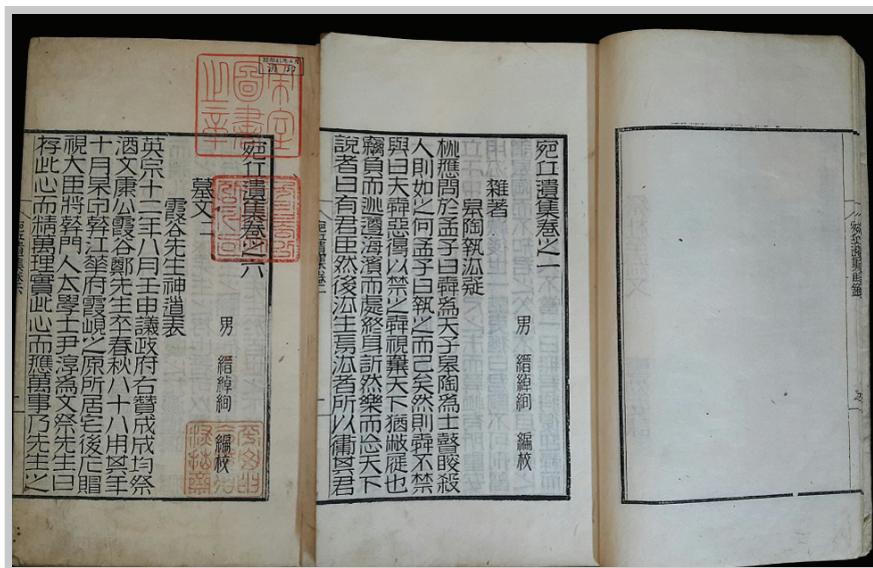 宛丘遺集卷之一
男 縉綽絢 編校
雜著
皐陶執法疑
桃應問於孟子曰舜爲天子皐陶爲士瞽瞍殺
人則如之何孟子曰執之而已矣然則舜不禁
與曰夫舜惡得以禁之舜視棄天下猶敝屣也
竊負而逃遵海濱而處終身訢然樂而忘天下
說者曰有君臣然後法生焉法者所以衛其君
宛丘遺集卷之六
男 縉綽絢 編校
墓文二
霞谷先生神道表
英宗十二年八月壬申議政府右贊成成均祭
酒文康公霞谷鄭先生卒春秋八十八用其年
十月某甲葬江華府霞峴之原所居宅後凡賵
視大臣將葬門人大學士尹淳爲文祭先生曰
存此心而精萬理實此心而應萬事乃先生之
帝室圖書之章